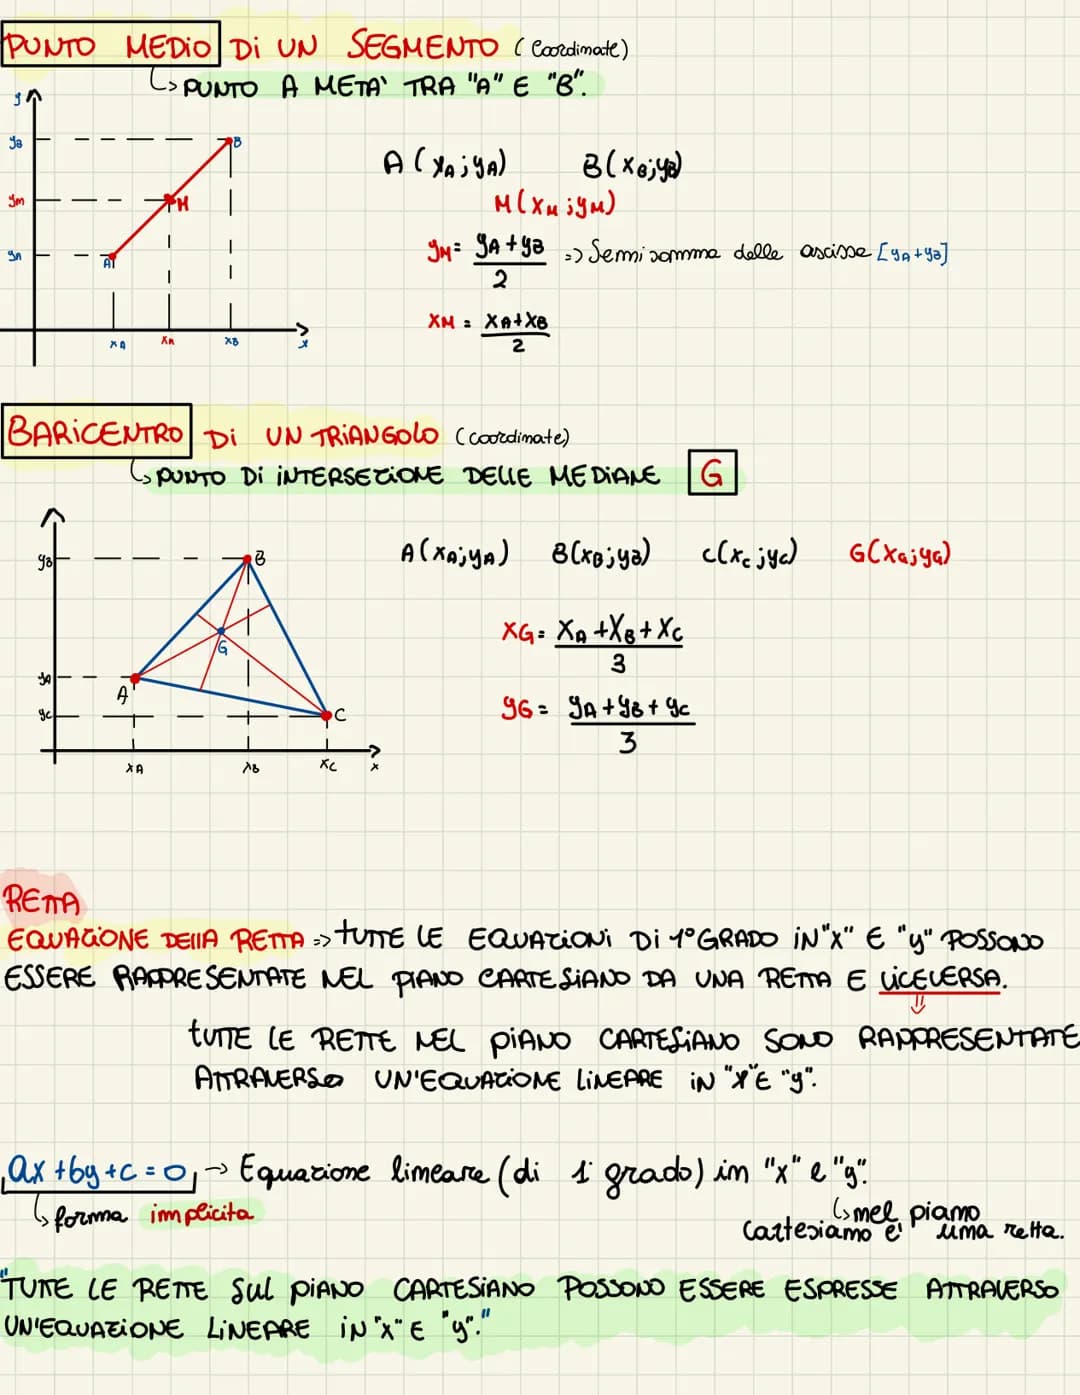 PUNTO MEDIO DI UN SEGMENTO (Coordinate)
↳ PUNTO A META' TRA "A" E "B".
y
yB
B
A(xA;yA) B(xB;yB)
yM
M
M(xM;yM)
yA
A
yM = yA+yB / 2 => Semisomma delle ascisse [yA+yB]
xM = xA+xB / 2
xA xM xB x
BARICENTRO DI UN TRIANGOLO (coordinate)
↳ PUNTO DI INTERSEZIONE DELLE MEDIANE G
yB
B
A(xA;yA) B(xB;yB) C(xC;yC) G(xG;yG)
G
xG = xA+xB+xC / 3
yA
A
yC
C
yG = yA+yB+yC / 3
xA xB xC x
RETTA
EQUAZIONE DELLA RETTA => TUTTE LE EQUAZIONI DI 1° GRADO IN "x" E "y" POSSONO
ESSERE RAPPRESENTATE NEL PIANO CARTESIANO DA UNA RETTA E VICEVERSA.
TUTTE LE RETTE NEL PIANO CARTESIANO SONO RAPPRESENTATE
ATTRAVERSO UN'EQUAZIONE LINEARE IN "x" E "y".
ax+by+c=0 → Equazione lineare (di 1° grado) in "x" e "y".
↳ forma implicita
↳ nel piano
cartesiano e' una retta.
"TUTTE LE RETTE SUL PIANO CARTESIANO POSSONO ESSERE ESPRESSE ATTRAVERSO
UN'EQUAZIONE LINEARE IN "x" E "y"."